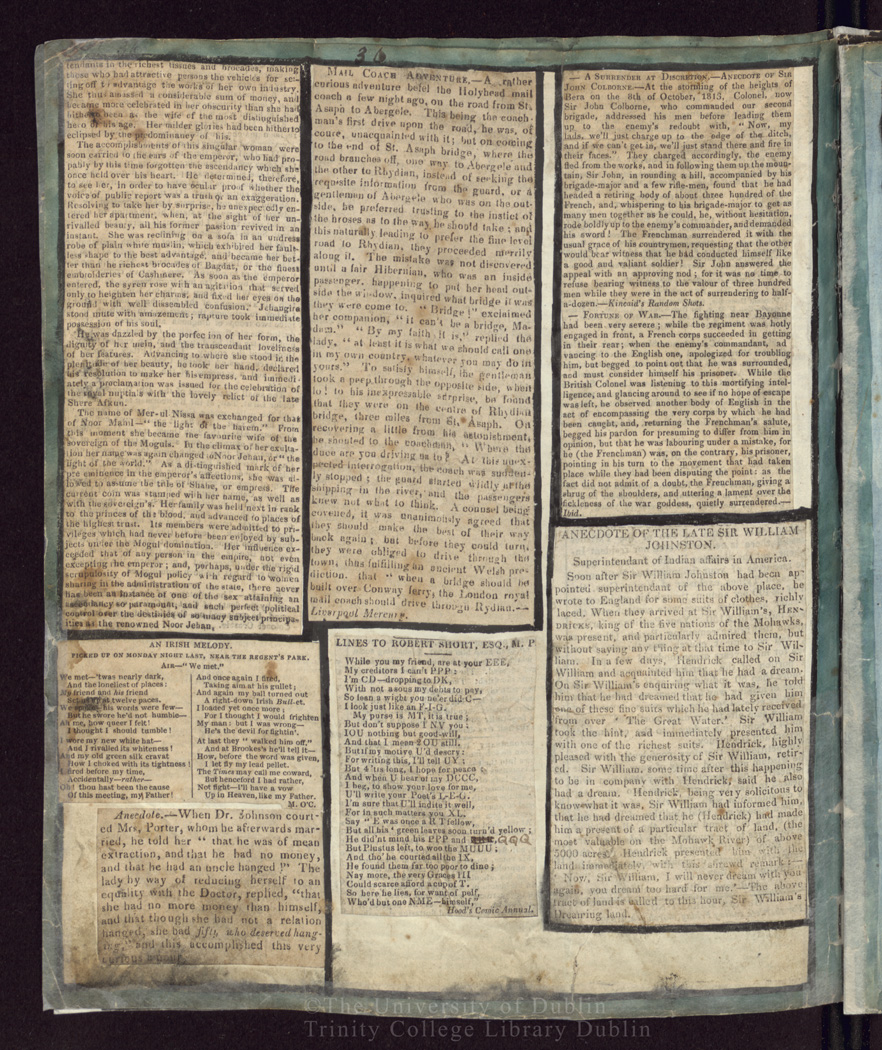 36
tendants in the richest tissues and brocades, making
those who had attractive persons the vehicles for set-
ting off to advantage the works of her own industry.
She thus amassed a considerable sum of money, and
became more celebrated in her obscurity than she had
hitherto been as the wife of the most distinguished
hero of his age. Her milder glories had been hitherto
eclipsed by the predominancy of his.
The accomplishments of this singular woman were
soon carried to the ears of the emperor, who had pro-
pably by this time forgotten the ascendancy which she
once held over his heart. He determined, therefore,
to see her, in order to have ocular proof whether the
voice of public report was a truth or an exaggeration.
Resolving to take her by surprise, he unexpectedly en-
tered her apartment, when, at the sight of her un-
rivalled beauty, all his former passion revived in an
instant. She was reclining on a sofa in an undress
robe of plain white muslin, which exhibited her fault-
less shape to the best advantage, and became her bet-
ter than the richest brocades of Bagdat, or the finest
embroideries of Cashmere. As soon as the emperor
entered, the syren rose with an agitation that served
only to heighten her charms, and fixed her eyes on the
ground with well dissembled confusion. Jehangire
stood mute with amazement; rapture took immediate
possession of his soul.
He was dazzled by the perfection of her form, the
dignity of her mein, and the transcendant loveliness
of her features. Advancing to where she stood in the
plenitude of her beauty, he took her hand, declared
his resolution to make her his empress, and immedi-
ately a proclamation was issued for the celebration of
the royal nuptials with the lovely relict of the late
Shire Afkun.
The name of Mer-ul Nissa was exchanged for that
of Noor Mahil—"the light of the harem." From
this moment she became the favourite wife of the
sovereign of the Moguls. In the climax of her exulta-
tion her name was again changed to Noor Jehan, or "the
light of the world." As a distinguished mark of her
pre eminence in the emperor's affections, she was al-
lowed to assume the title of Shahe, or empress. The
current coin was stamped with her name, as well as
with the sovereign's. Her family was held next in rank
to the princes of the blood, and advanced to places of
the highest trust. Its members were admitted to pri-
vileges which had never before been enjoyed by sub-
jects under the Mogul domination. Her influence ex-
ceeded that of any person in the empire, not even
excepting the emperor; and, perhaps, under the rigid
scrupulosity of Mogul policy with regard to women
sharing in the administration of the state, there never
has been an instance of one of the sex attaining an
ascendancy so paramount, and such perfect political
control over the destinies of so many subject principa-
lities as the renowned Noor Jehan.
AN IRISH MELODY.
PICKED UP ON MONDAY NIGHT LAST, NEAR THE REGENT'S PARK.
AIR—"We met."
We met—'twas nearly dark,
And the loneliest of places:
My friend and his friend
Set us at twelve paces.
We spoke, his words were few—
But he swore he'd not humble—
Ah me, how queer I felt!
I thought I should tumble!
I wore my new white hat—
And I rivalled its whiteness!
And my old green silk cravat
How I choked with its tightness!
I fired before my time,
Accidentally—rather—
Oh! thou hast been the cause
Of this meeting, my Father!
And once again I fired,
Taking aim at his gullet;
And again my ball turned out
A right-down Irish Bull-et.
I loaded yet once more;
For I thought I would frighten
My man: but I was wrong—
He's the devil for fightin'.
At last they "walked him off,"
And at Brookes's he'll tell it—
How, before the word was given,
I let fly my lead pellet.
The Times may call me coward,
But henceford I had rather,
Not fight—I'll have a vow
Up in Heaven, like my Father.
M. O'C.
Anecdote.—When Dr. Johnson court-
ed Mrs. Porter, whom he afterwards mar-
ried, he told her "that he was of mean
extraction, and that he had no money,
and that he had an uncle hanged!" The
lady by way of reducing herself to an
equality with the Doctor, replied, "that
she had no more money than himself,
and that though she had not a relation
hanged, she had fifty, who deserved hang-
ing," and this accomplished this very
curious amour.
MAIL COACH ADVENTURE.—A rather
curious adventure befel the Holyhead mail
coach a few night ago, on the road from St.
Asaph to Abergele. This being the coach
man's first drive upon the road, he was, of
couce, unacquainted with it; but on coming
to the end of St. Asaph bridge, where the
road branches off, one way to Abergele and
the other to Rhydian, instead of seeking the
requosite information from the guard, or a
gentlemen of Abergele who was on the out-
side, he preferred trusting to the instict of
the hroses as to the way he should take; and
this naturally leading to prefer the fine level
road to Rhydian, they proceeded merrily
along it. The mistake was not discovered
until a fair Hibernian, who was an inside
passenger, happening to put her head out-
side the window, inquired what bridge it was
they were come to. "Bridge!" exclaimed
her companion, "it can't be a bridge, Ma-
dam." "By my faith it is," replied the
lady, "at least it is what we should call one
in my own country, whatever you may do in
yours." To satisfy himself, the gentleman
took a peep through the opposite side, when
lo! to his inexpressible surprise, he found
that they were on the centre of Rhydian
bridge, three miles from St. Asaph. On
recovering a little from his astonishment,
he shouted to the coachman, "Where the
duce are you driving us to?" At this unex-
pected interrogation, the coach was sudden-
ly stopped; the guard started wildly at the
shipping in the river, and the passengers
knew not what to think. A counsel being
covened, it was unanimously agreed that
they should make the best of their way
back again; but before they could turn,
they were obliged to drive through the
town, thus fulfilling an ancient Welsh pre-
diction, that "when a bridge should be
built over Conway ferry, the London royal
mail coach should drive through Rydian.—
Liverpool Mercury.
LINES TO ROBERT SHORT, ESQ., M. P.
While you my friend, are at your EEE,
My creditors I can't PPP:
I'm CD—dropping to DK,
With not a sous my debts to pay,
So lean a wight you ne'er did C—
I look just like an F-I-G.
My purse is MT, it is true;
But don't suppose I NV you:
IOU nothing but good-will,
And that I mean 2 OU still.
But if my motive U'd descry:
For writing this, I'll tell UY.
But 4 'tis long, I hope for peace
And when U hear of my DCCC,
I beg, to show your love for me,
U'll write your Poet's L-E-G.
I'm sure that U'll indite it well,
For in such matters you XL.
Say "E was once a RT fellow,
But all his 'green leaves soon turn'd yellow;
He did'nt mind his PPP and QQQ
But Plautus left, to woo the MUUU;
And tho' he courted all the IX,
He found them far too poor to dine;
Nay more, the very Graces III
Could scarce afford a cup of T.
So here he lies, for want of pelf,
Who'd but one NME—himself."
Hood's Comic Annual.
— A SURRENDER AT DISCRETION.—ANECDOTE OF SIR
JOHN COLBORNE.—At the storming of the heights of
Bera on the 8th of October, 1813, Colonel, now
Sir John Colborne, who commanded our second
brigade, addressed his men before leading them
up to the enemy's redoubt with, "Now, my
lads, we'll just charge up to the edge of the ditch,
and if we can't get in, we'll just stand there and fire in
their faces." They charged accordingly, the enemy
fled from the works, and in following them up the moun-
tain, Sir John, in rounding a hill, accompanied by his
brigade-major and a few rifle-men, found that he had
headed a retiring body of about three hundred of the
French, and, whispering to his brigade-major to get as
many men together as he could, he, without hesitation,
rode boldly up to the enemy's commander, and demanded
his sword! The Frenchman surrendered it with the
usual grace of his countrymen, requesting that the other
would bear witness that he had conducted himself like
a good and valiant soldier! Sir John answered the
appeal with an approving nod; for it was no time to
refuse bearing witness to the valour of three hundred
men while they were in the act of surrendering to half-
a-dozen.—Kincaid's Random Shots.
— FORTUNE OF WAR.—The fighting near Bayonne
had been very severe; while the regiment was hotly
engaged in front, a French corps succeeded in getting
in their rear; when the enemy's commandant, ad
vancing to the English one, apologized for troubling
him, but begged to point out that he was surrounded,
and must consider himself his prisoner. While the
British Colonel was listening to this mortifying intel-
ligence, and glancing around to see if no hope of escape
was left, he observed another body of English in the
act of encompassing the very corps by which he had
been caught, and, returning the Frenchman's salute,
begged his pardon for presuming to differ from him in
opinion, but that he was labouring under a mistake, for
he (the Frenchman) was, on the contrary, his prisoner,
pointing in his turn to the movement that had taken
place while they had been disputing the point: as the
fact did not admit of a doubt, the Frenchman, giving a
shrug of the shoulders, and uttering a lament over the
fickleness of the war goddess, quietly surrendered.—
Ibid.
ANECDOTE OF THE LATE SIR WILLIAM
JOHNSTON.
Superintendant of Indian affairs in America.
Soon after Sir William Johnston had been ap-
pointed superintendant of the above place, he
wrote to England for some suits of clothes, richly
laced. When they arrived at Sir William's, HEN-
DRICKS, king of the five nations of the Mohawks,
was present, and particularly admired them, but
without saying any thing at that time to Sir Wil-
liam. In a few days, Hendrick called on Sir
William and acquainted him that he had a dream.
On Sir William's enquiring what it was, he told
him that he had dreamed that he had given him
one of these fine suits which he had lately received
from over 'The Great Water.' Sir William
took the hint, and immediately presented him
with one of the richest suits. Hendrick, highly
pleased with the generosity of Sir William, retir-
ed. Sir William, some time after this happening
to be in company with Hendrick, said he also
had a dream. Hendrick, being very solicitous to
know what it was, Sir William had informed him,
that he had dreamed that he (Hendrick) had made
him a present of a particular tract of land, (the
most valuable on the Mohawk River) of above
5000 acres. Hendrick presented him with the
land immediately, with this shrewd remark:—
'Now, Sir William, I will never dream with you
again, you dream too hard for me.'—The above
tract of land is called to this hour, Sir William's
Dreaming land.
©The University of Dublin
Trinity College Library Dublin